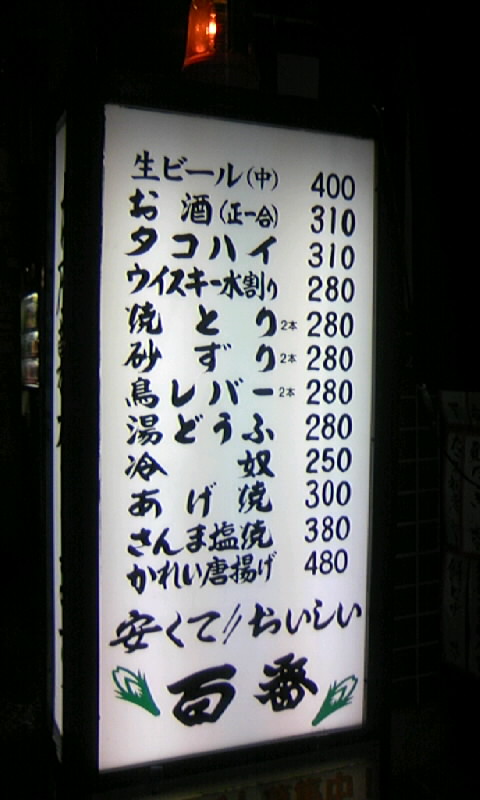 生ビール(中) 400
お酒(正一合) 310
タコハイ 310
ウイスキー水割り 280
焼とり2本 280
砂ずり2本 280
鳥レバー2本 280
湯どうふ 280
冷奴 250
あげ焼 300
さんま塩焼 380
かれい唐揚げ 480
安くて!!おいしい
百番